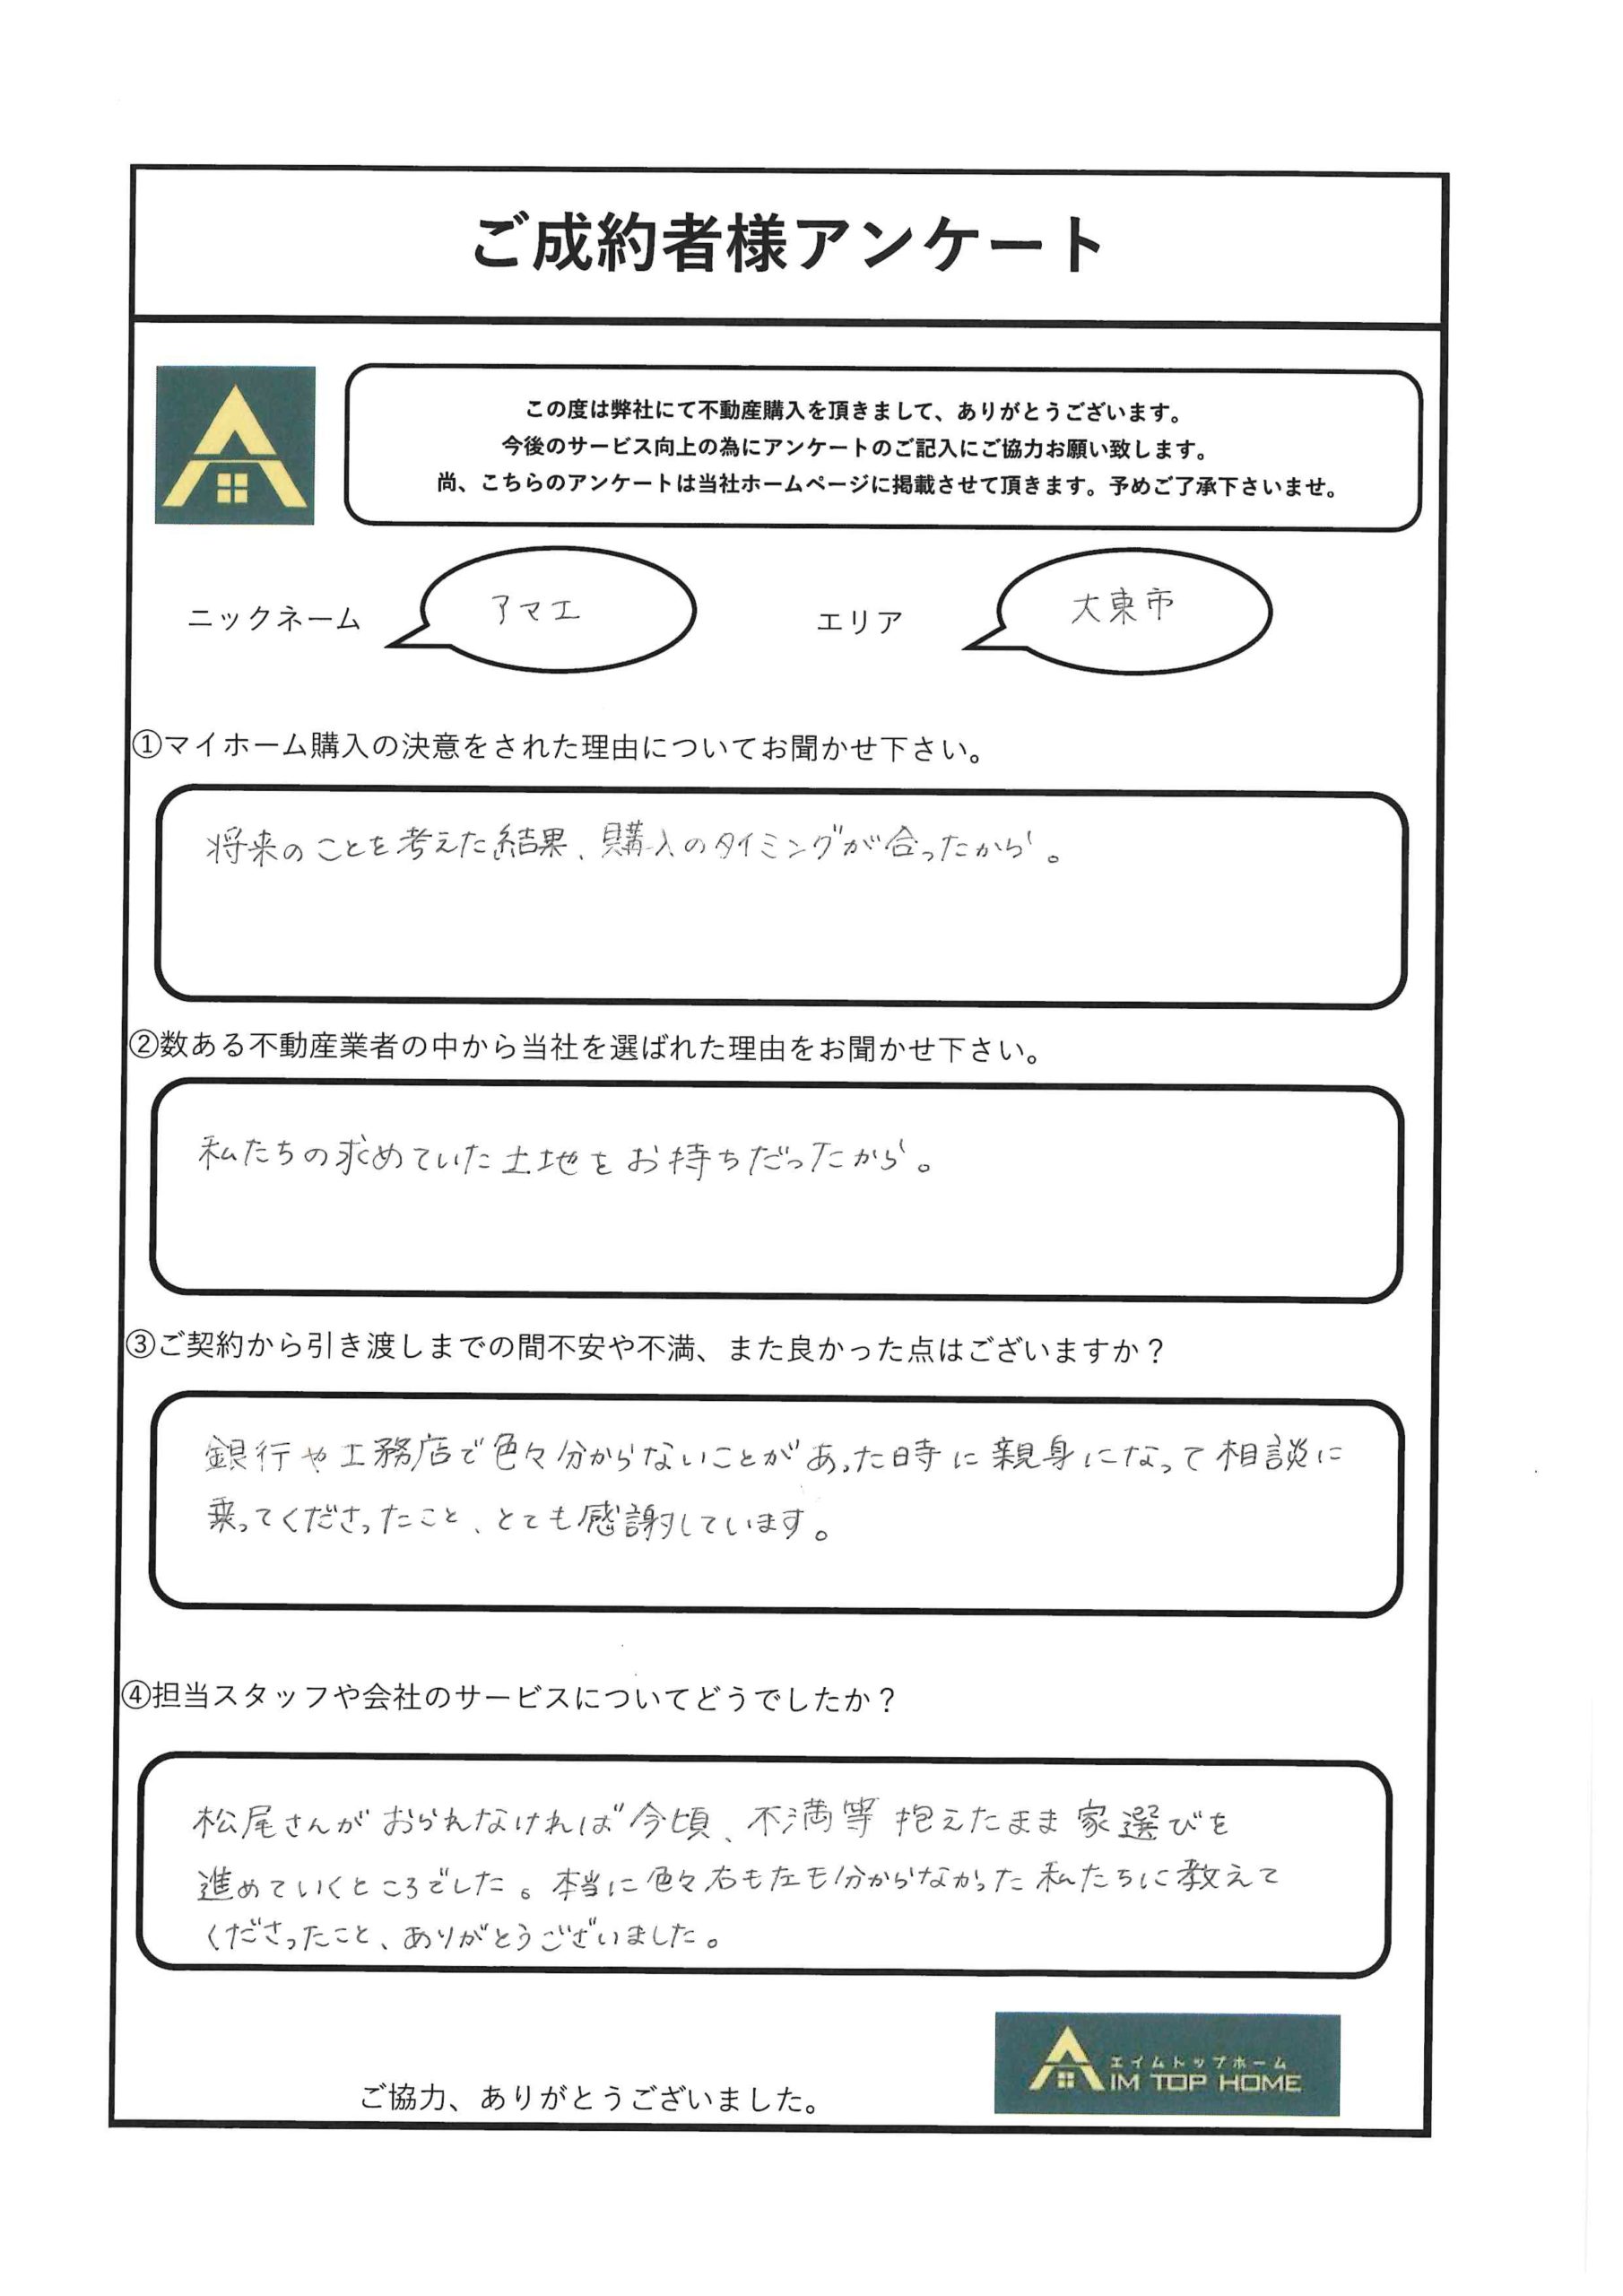 ご成約者様アンケート
この度は弊社にて不動産購入を頂きまして、ありがとうございます。
今後のサービス向上の為にアンケートのご記入にご協力お願い致します。
尚、こちらのアンケートは当社ホームページに掲載させて頂きます。予めご了承下さいませ。
ニックネーム アマエ エリア 大東市
①マイホーム購入の決意をされた理由についてお聞かせ下さい。
将来のことを考えた結果、購入のタイミングが合ったから。
②数ある不動産業者の中から当社を選ばれた理由をお聞かせ下さい。
私たちの求めていた土地をお持ちだったから。
③ご契約から引き渡しまでの間不安や不満、また良かった点はございますか？
銀行や工務店で色々分からないことがあった時に親身になって相談に
乗ってくださったこと、とても感謝しています。
④担当スタッフや会社のサービスについてどうでしたか？
松尾さんがおられなければ今頃、不満等抱えたまま家選びを
進めていくところでした。本当に色々右も左も分からなかった私たちに教えて
くださったこと、ありがとうございました。
エイムトップホーム
AIM TOP HOME
ご協力、ありがとうございました。